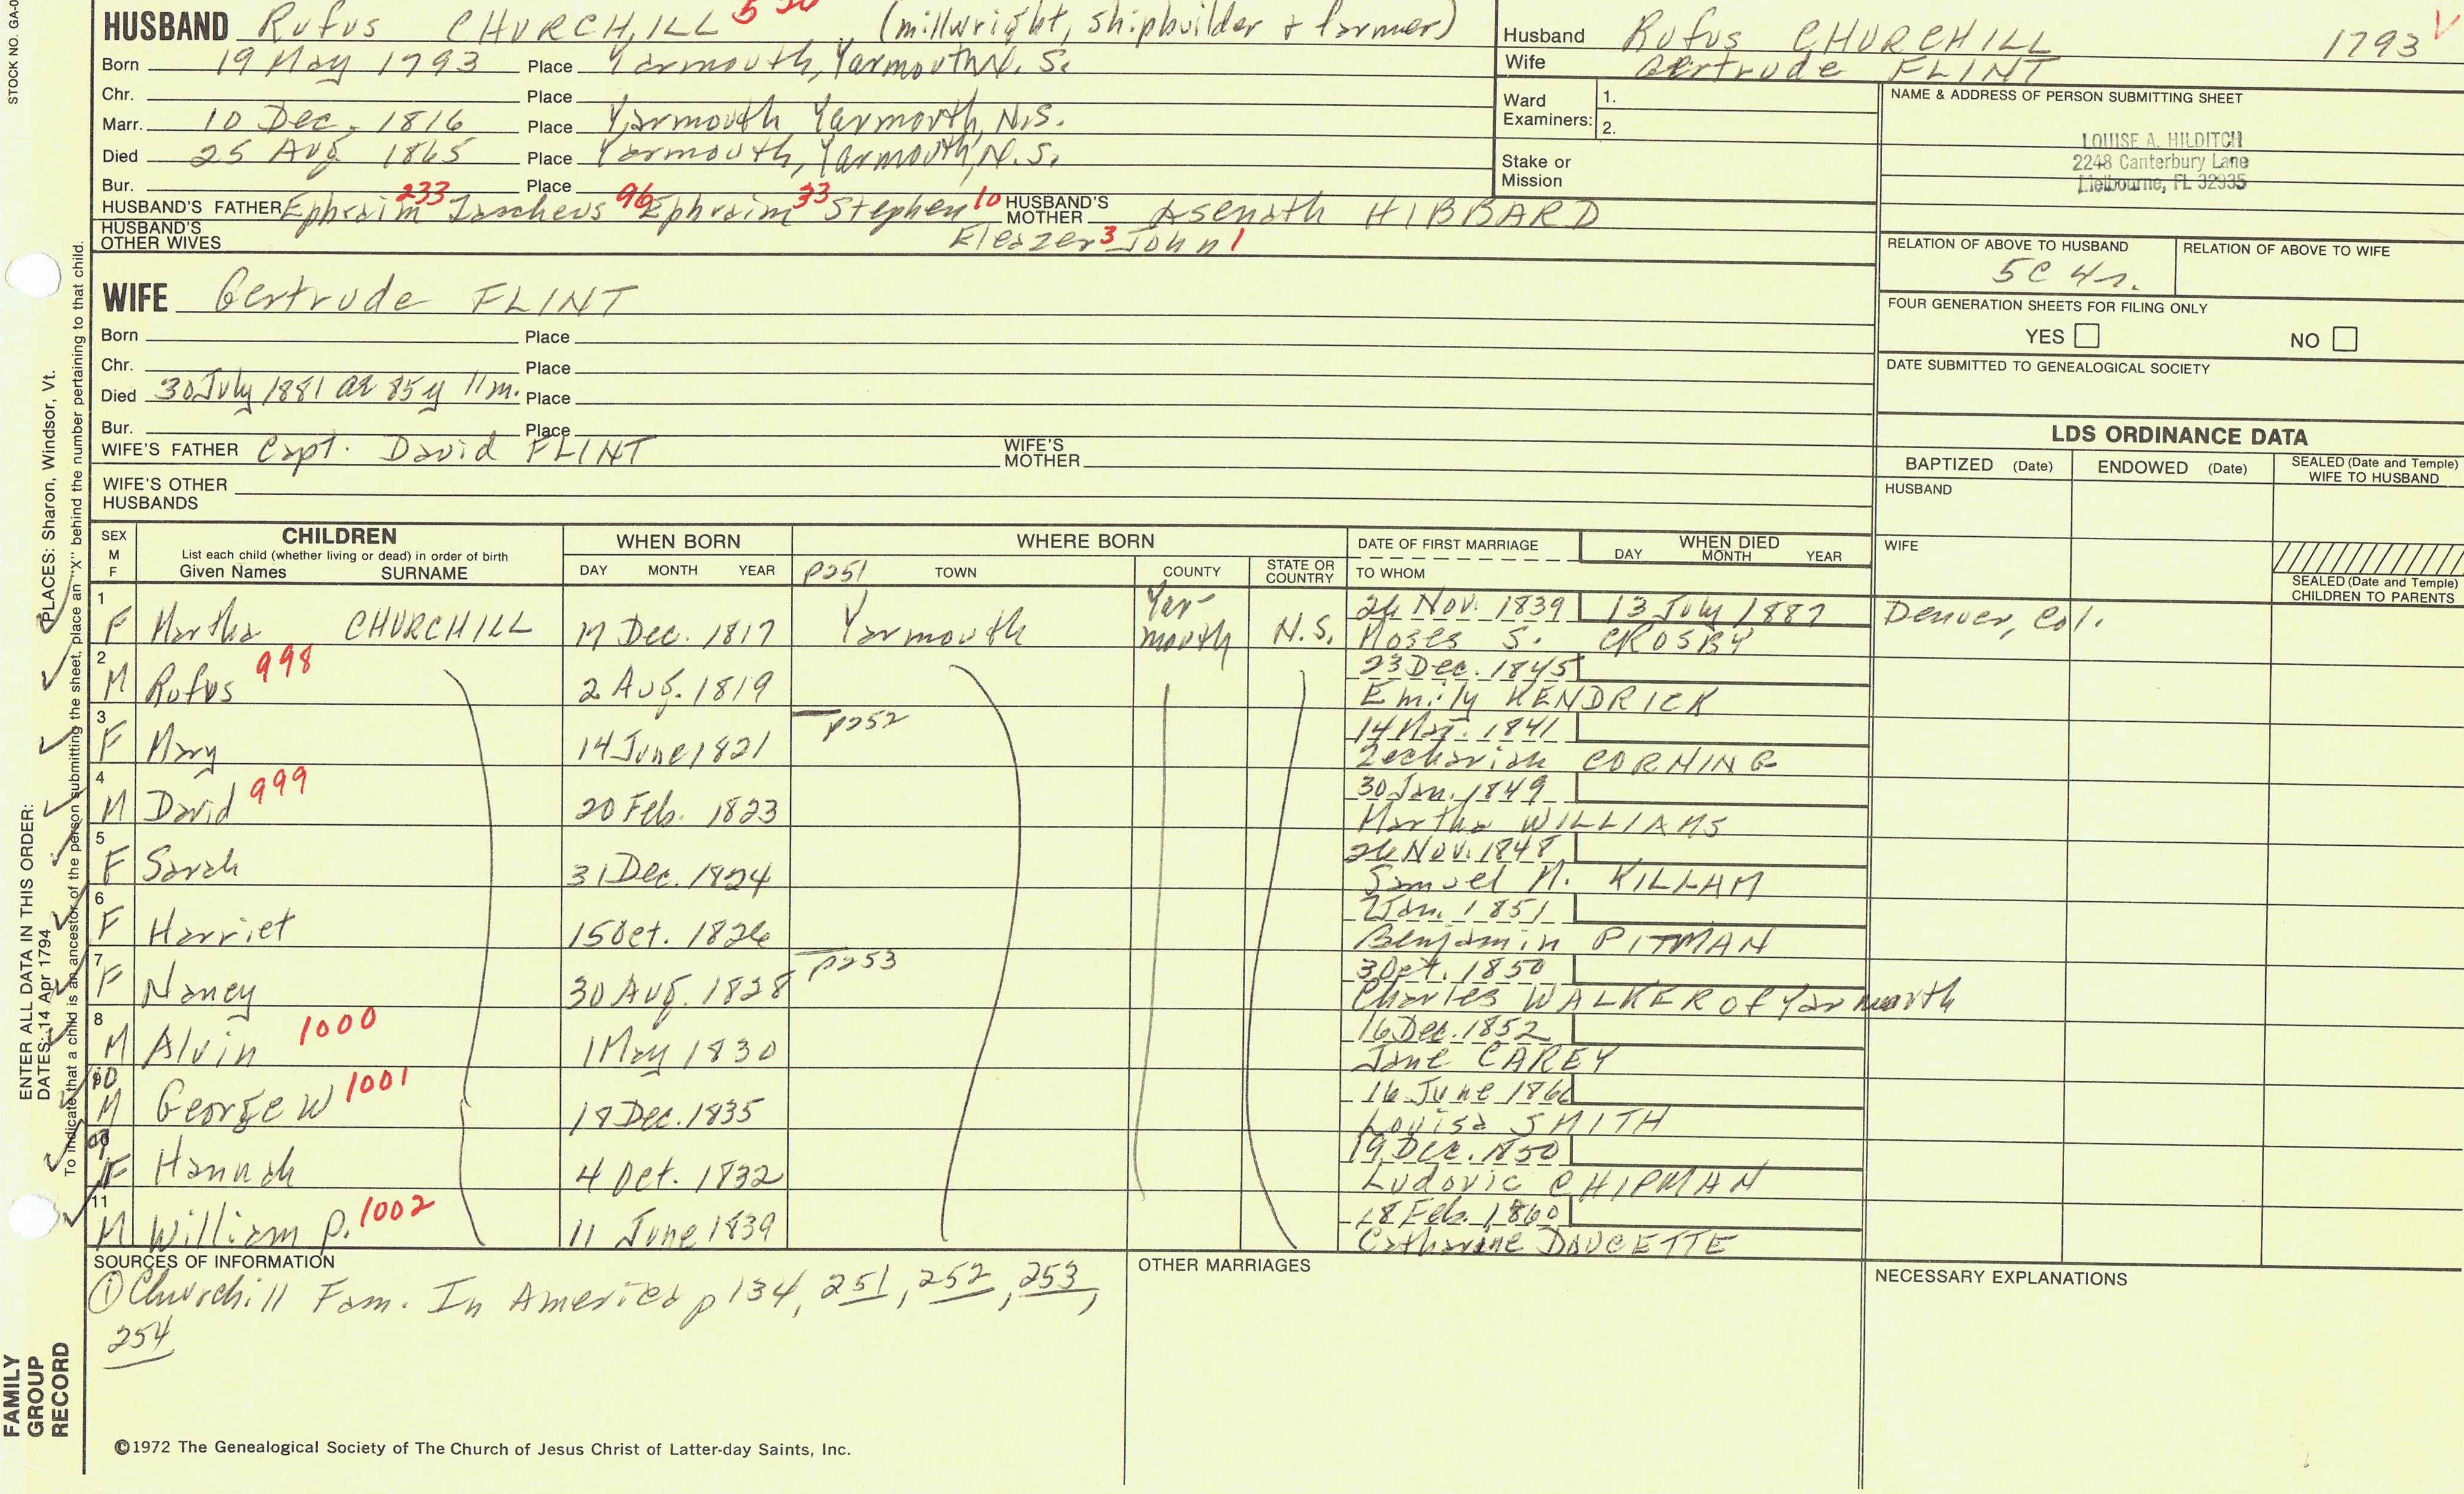 STOCK NO. GA-0
HUSBAND Rufus CHURCHILL (millwright, shipbuilder + farmer)
Born 19 May 1793 Place Yarmouth, Yarmouth N.S.
Chr. Place
Marr. 10 Dec. 1816 Place Yarmouth Yarmouth, N.S.
Died 25 Aug. 1865 Place Yarmouth, Yarmouth, N.S.
Bur. Place
HUSBAND'S FATHER Ephraim 233 Zacheus 96 Ephraim 33 Stephen 10 HUSBAND'S MOTHER Asenath HIBBARD
HUSBAND'S OTHER WIVES Eleazer 3 John 1
Husband Rufus CHURCHILL 1793 V
Wife Gertrude FLINT
Ward Examiners: 1.
2.
Stake or Mission
NAME & ADDRESS OF PERSON SUBMITTING SHEET
LOUISE A. HILDITCH
2248 Canterbury Lane
Melbourne, FL 32935
RELATION OF ABOVE TO HUSBAND RELATION OF ABOVE TO WIFE
5C 4r.
FOUR GENERATION SHEETS FOR FILING ONLY
YES NO
DATE SUBMITTED TO GENEALOGICAL SOCIETY
WIFE Gertrude FLINT
Born Place
Chr. Place
Died 30 July 1881 ae 85y 11m. Place
Bur. Place
WIFE'S FATHER Capt. David FLINT WIFE'S MOTHER
WIFE'S OTHER HUSBANDS
LDS ORDINANCE DATA
BAPTIZED (Date) ENDOWED (Date) SEALED (Date and Temple) WIFE TO HUSBAND
HUSBAND
WIFE
SEALED (Date and Temple) CHILDREN TO PARENTS
SEX M F CHILDREN WHEN BORN WHERE BORN DATE OF FIRST MARRIAGE WHEN DIED
List each child (whether living or dead) in order of birth
Given Names SURNAME DAY MONTH YEAR p251 TOWN COUNTY STATE OR COUNTRY TO WHOM DAY MONTH YEAR
1 F Martha CHURCHILL 17 Dec. 1817 Yarmouth Yar-mouth N.S. 26 Nov. 1839 13 July 1887 Denver, Col.
Moses S. CROSBY
2 M Rufus 998 2 Aug. 1819 23 Dec. 1845
Emily KENDRICK
3 F Mary 14 June 1821 p252 14 Mar. 1841
Zechariah CORNING
4 M David 999 20 Feb. 1823 30 Jan. 1849
Martha WILLIAMS
5 F Sarah 31 Dec. 1824 26 Nov. 1848
Samuel M. KILLAM
6 F Harriet 15 Oct. 1826 2 Jan. 1851
Benjamin PITMAN
7 F Nancy 30 Aug. 1828 p253 3 Oct. 1850
Charles WALKER of Yarmouth
8 M Alvin 1000 1 May 1830 16 Dec. 1852
Jane CAREY
10 M George W 1001 18 Dec. 1835 16 June 1860
Louisa SMITH
9 F Hannah 4 Oct. 1832 19 Dec. 1850
Ludovic CHIPMAN
11 M William P. 1002 11 June 1839 18 Feb. 1860
Catharine DOUCETTE
SOURCES OF INFORMATION OTHER MARRIAGES NECESSARY EXPLANATIONS
① Churchill Fam. In America p 134, 251, 252, 253,
254
©1972 The Genealogical Society of The Church of Jesus Christ of Latter-day Saints, Inc.
ENTER ALL DATA IN THIS ORDER:
DATES: 14 Apr 1794 PLACES: Sharon, Windsor, Vt.
To indicate that a child is an ancestor of the person submitting the sheet, place an "X" behind the number pertaining to that child.
FAMILY
GROUP
RECORD